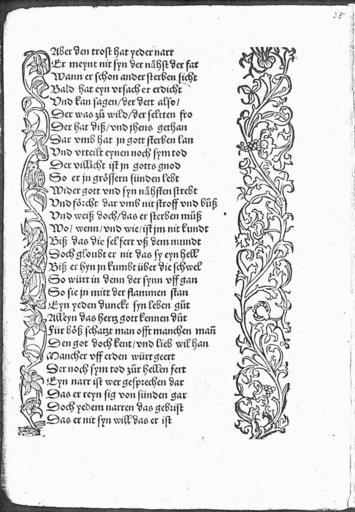 Aber den trost hat yeder narr
Er meynt nit syn der nähst der far
Wann er schon ander sterben sicht
Bald hat eyn vrsach er erdicht
Vnd kan sagen / der dett also /
Der was zů wild / der seltten fro
Der hat diß / vnd jhens gethan
Dar vmb hat jn gott sterben lan
Vnd vrteilt eynen noch sym tod
Der villicht ist jn gotts gnod
So er jn grössern sünden lebt
Wider gott vnd syn nähsten strebt
Vnd förcht dar vmb nit stroff vnd bůß
Vnd weiß doch / das er sterben můß
Wo / wenn / vnd wie / ist jm nit kundt
Biß das die sel fert vß dem mundt
Doch gloubt er nit das sy eyn hell
Biß er hyn jn kumbt über die schwel
So würt jn denn der synn vff gan
So sie jn mitt der flammen stan
Eyn yeden dunckt syn leben gůt
Alleyn das hertz gott kennen důt
Für böß schätzt man offt manchen man
Den got doch kent / vnd lieb wil han
Mancher vff erden würt geert
Der noch sym tod zůr hellen fert
Eyn narr ist wer gesprechen dar
Das er reyn sig von sünden gar
Doch yedem narren das gebrist
Das er nit syn will das er ist